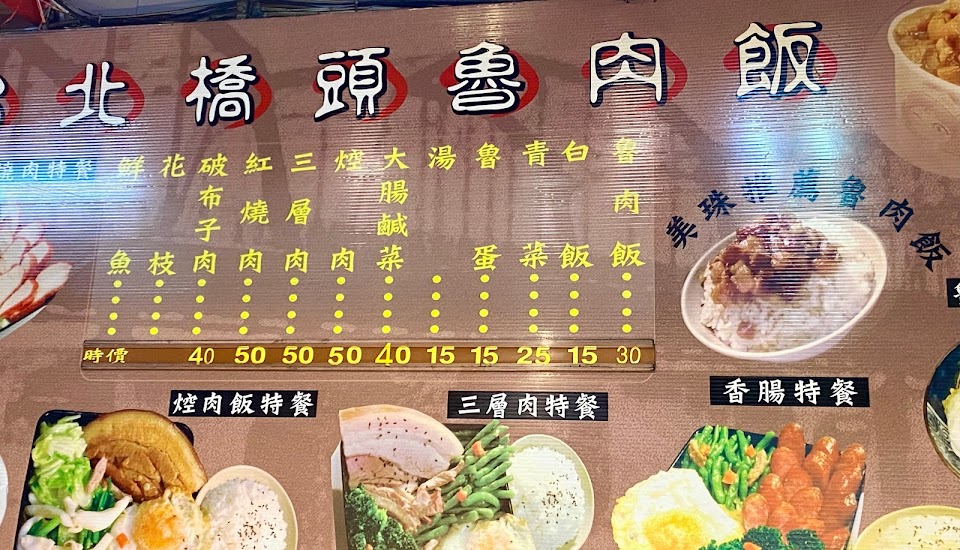 北橋頭魯肉飯
燒肉特餐
魯肉飯
白飯
青菜
魯蛋
湯
大腸鹹菜
焢肉
三層肉
紅燒肉
破布子肉
花枝
鮮魚
時價 40 50 50 50 40 15 15 25 15 30
美珠推薦魯肉飯
焢肉飯特餐
三層肉特餐
香腸特餐